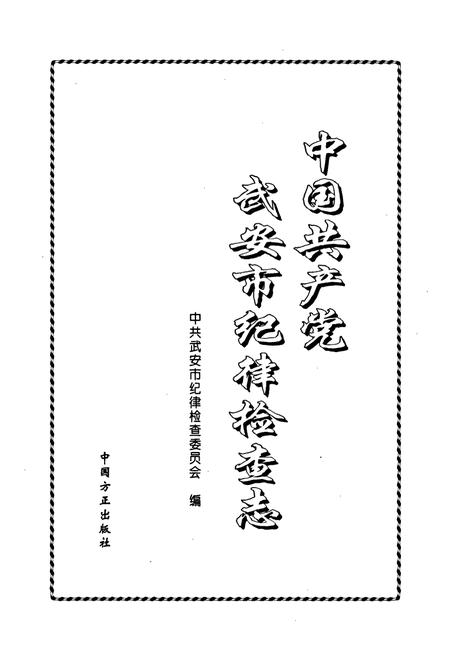 中国共产党
武安市纪律检查志
中共武安市纪律检查委员会 编
中国方正出版社